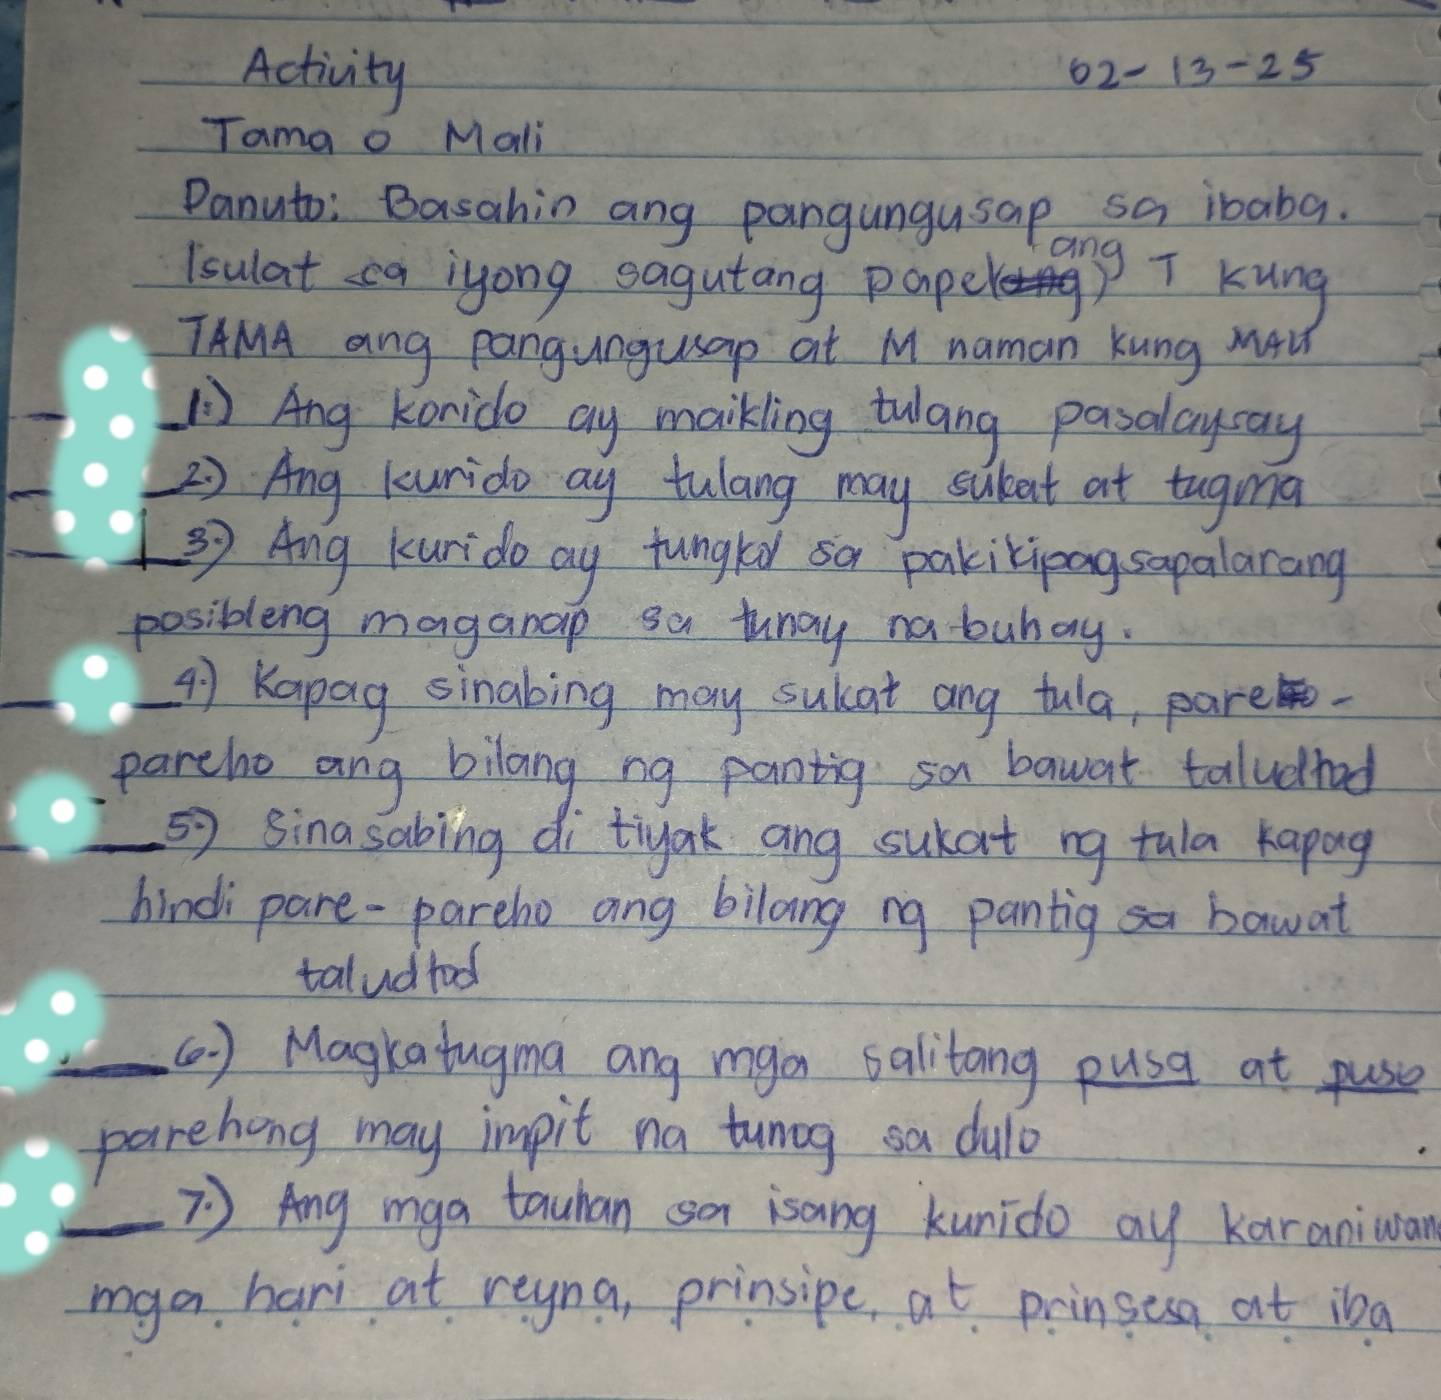 Activity 02-13-25
Tama o Mali
Panuto: Basahin ang pangungusap sa ibaba.
Isulat sa iyong sagutang papel ang T kung
TAMA ang pangungusap at M naman kung MALI
1.) Ang korido ay maikling tulang pasalaysay
2.) Ang kurido ay tulang may sukat at tugma
3.) Ang kurido ay tungkol sa pakikipagsapalarang
posibleng maganap sa tunay na buhay.
4.) Kapag sinabing may sukat ang tula, pare-
pareho ang bilang ng pantig sa bawat taludtod
5.) Sinasabing di tiyak ang sukat ng tula kapag
hindi pare-pareho ang bilang ng pantig sa bawat
taludtod
6.) Magkatugma ang mga salitang pusa at puso
parehong may impit na tunog sa dulo
7.) Ang mga tauhan sa isang kurido ay karaniwan
mga hari at reyna, prinsipe, at prinsesa at iba